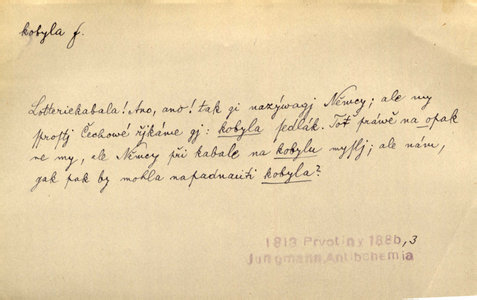 kobyla f.
Lotteriekabala! Ano, ano! tak gi nazýwagj Němcy; ale my
sprostj Čechowé řjkáme gj: kobyla sedlák. Toť práwě na opak
ne my, ale Němcy při kabale na kobylu myslj; ale nám,
gak pak by mohla napadnauti kobyla?
1813 Prvotiny 188b,3
Jungmann, Antibohemia